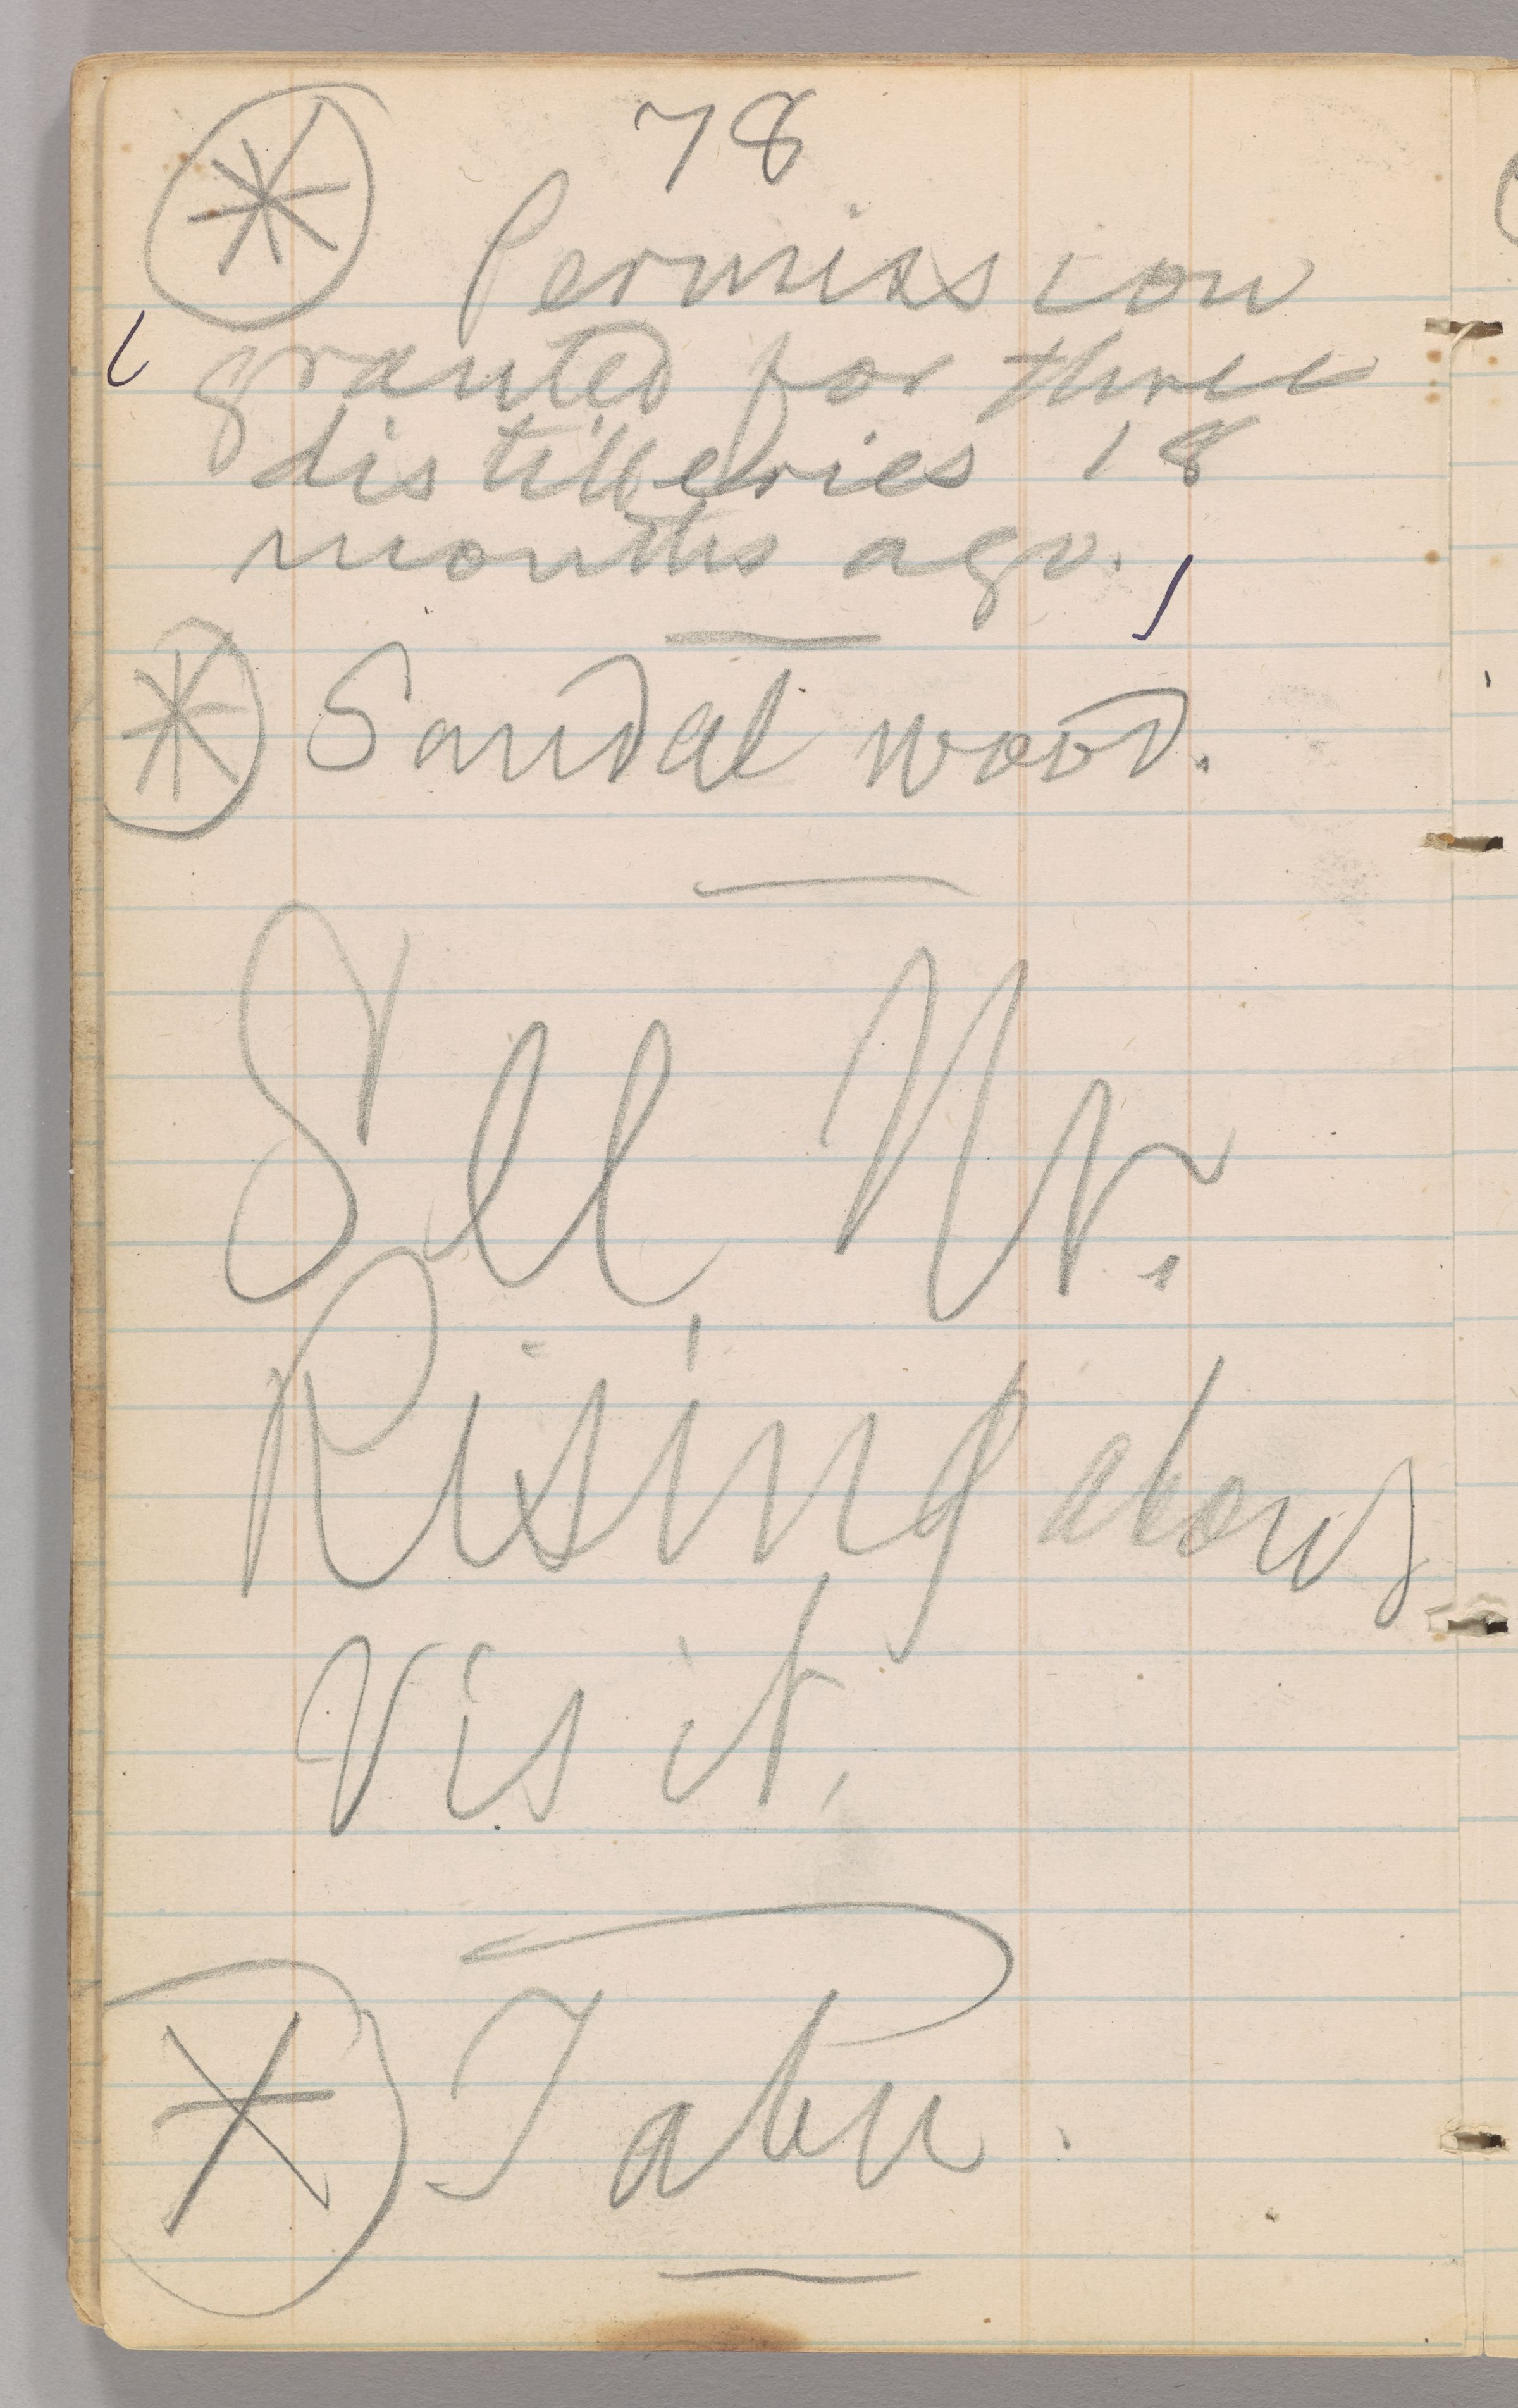 78
* Permission
granted for three
distilleries 18
months ago.
* Sandal wood.
See Mr.
Rising about
visit.
* Tabu.